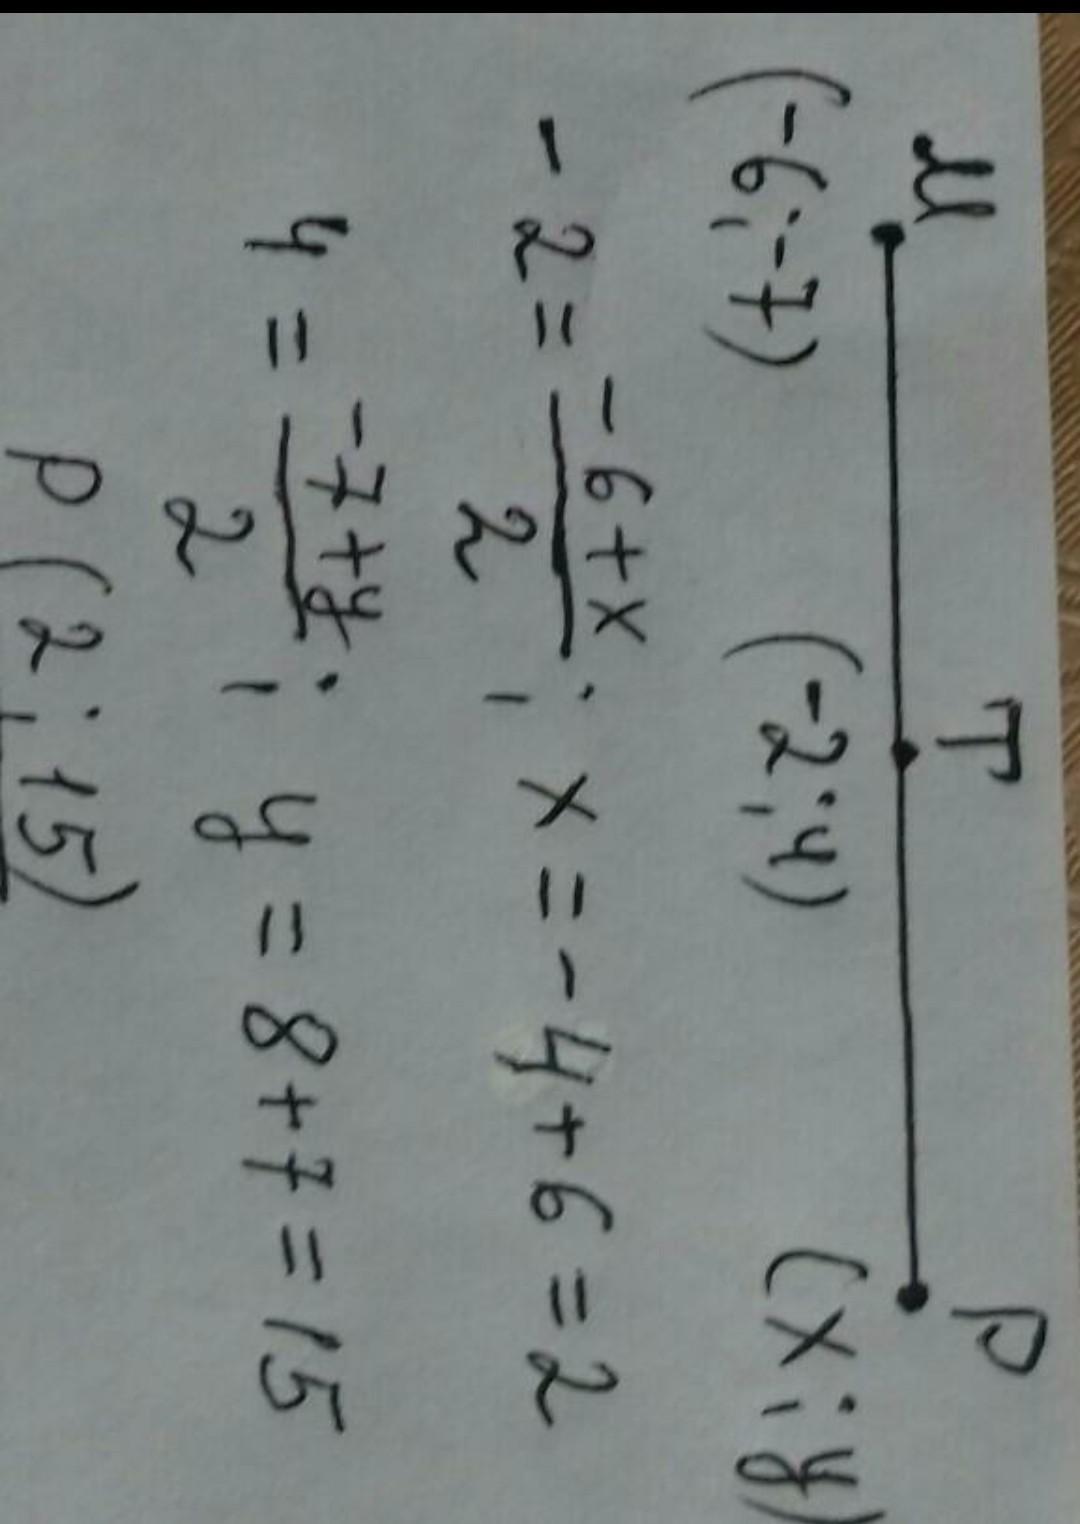 M T P
(-6;-7) (-2;4) (x;y)
-2 = \frac{-6+x}{2}; x = -4+6 = 2
4 = \frac{-7+y}{2}; y = 8+7 = 15
P(2;15)